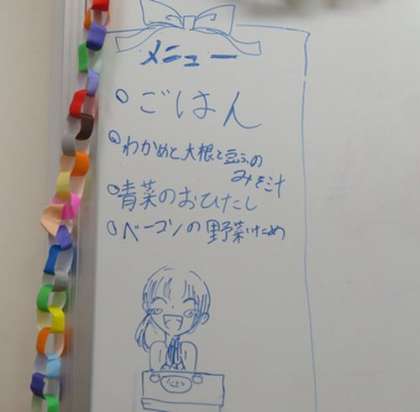 メニュー
○ごはん
○わかめと大根と豆ふの
みそ汁
○青菜のおひたし
○ベーコンの野菜いため